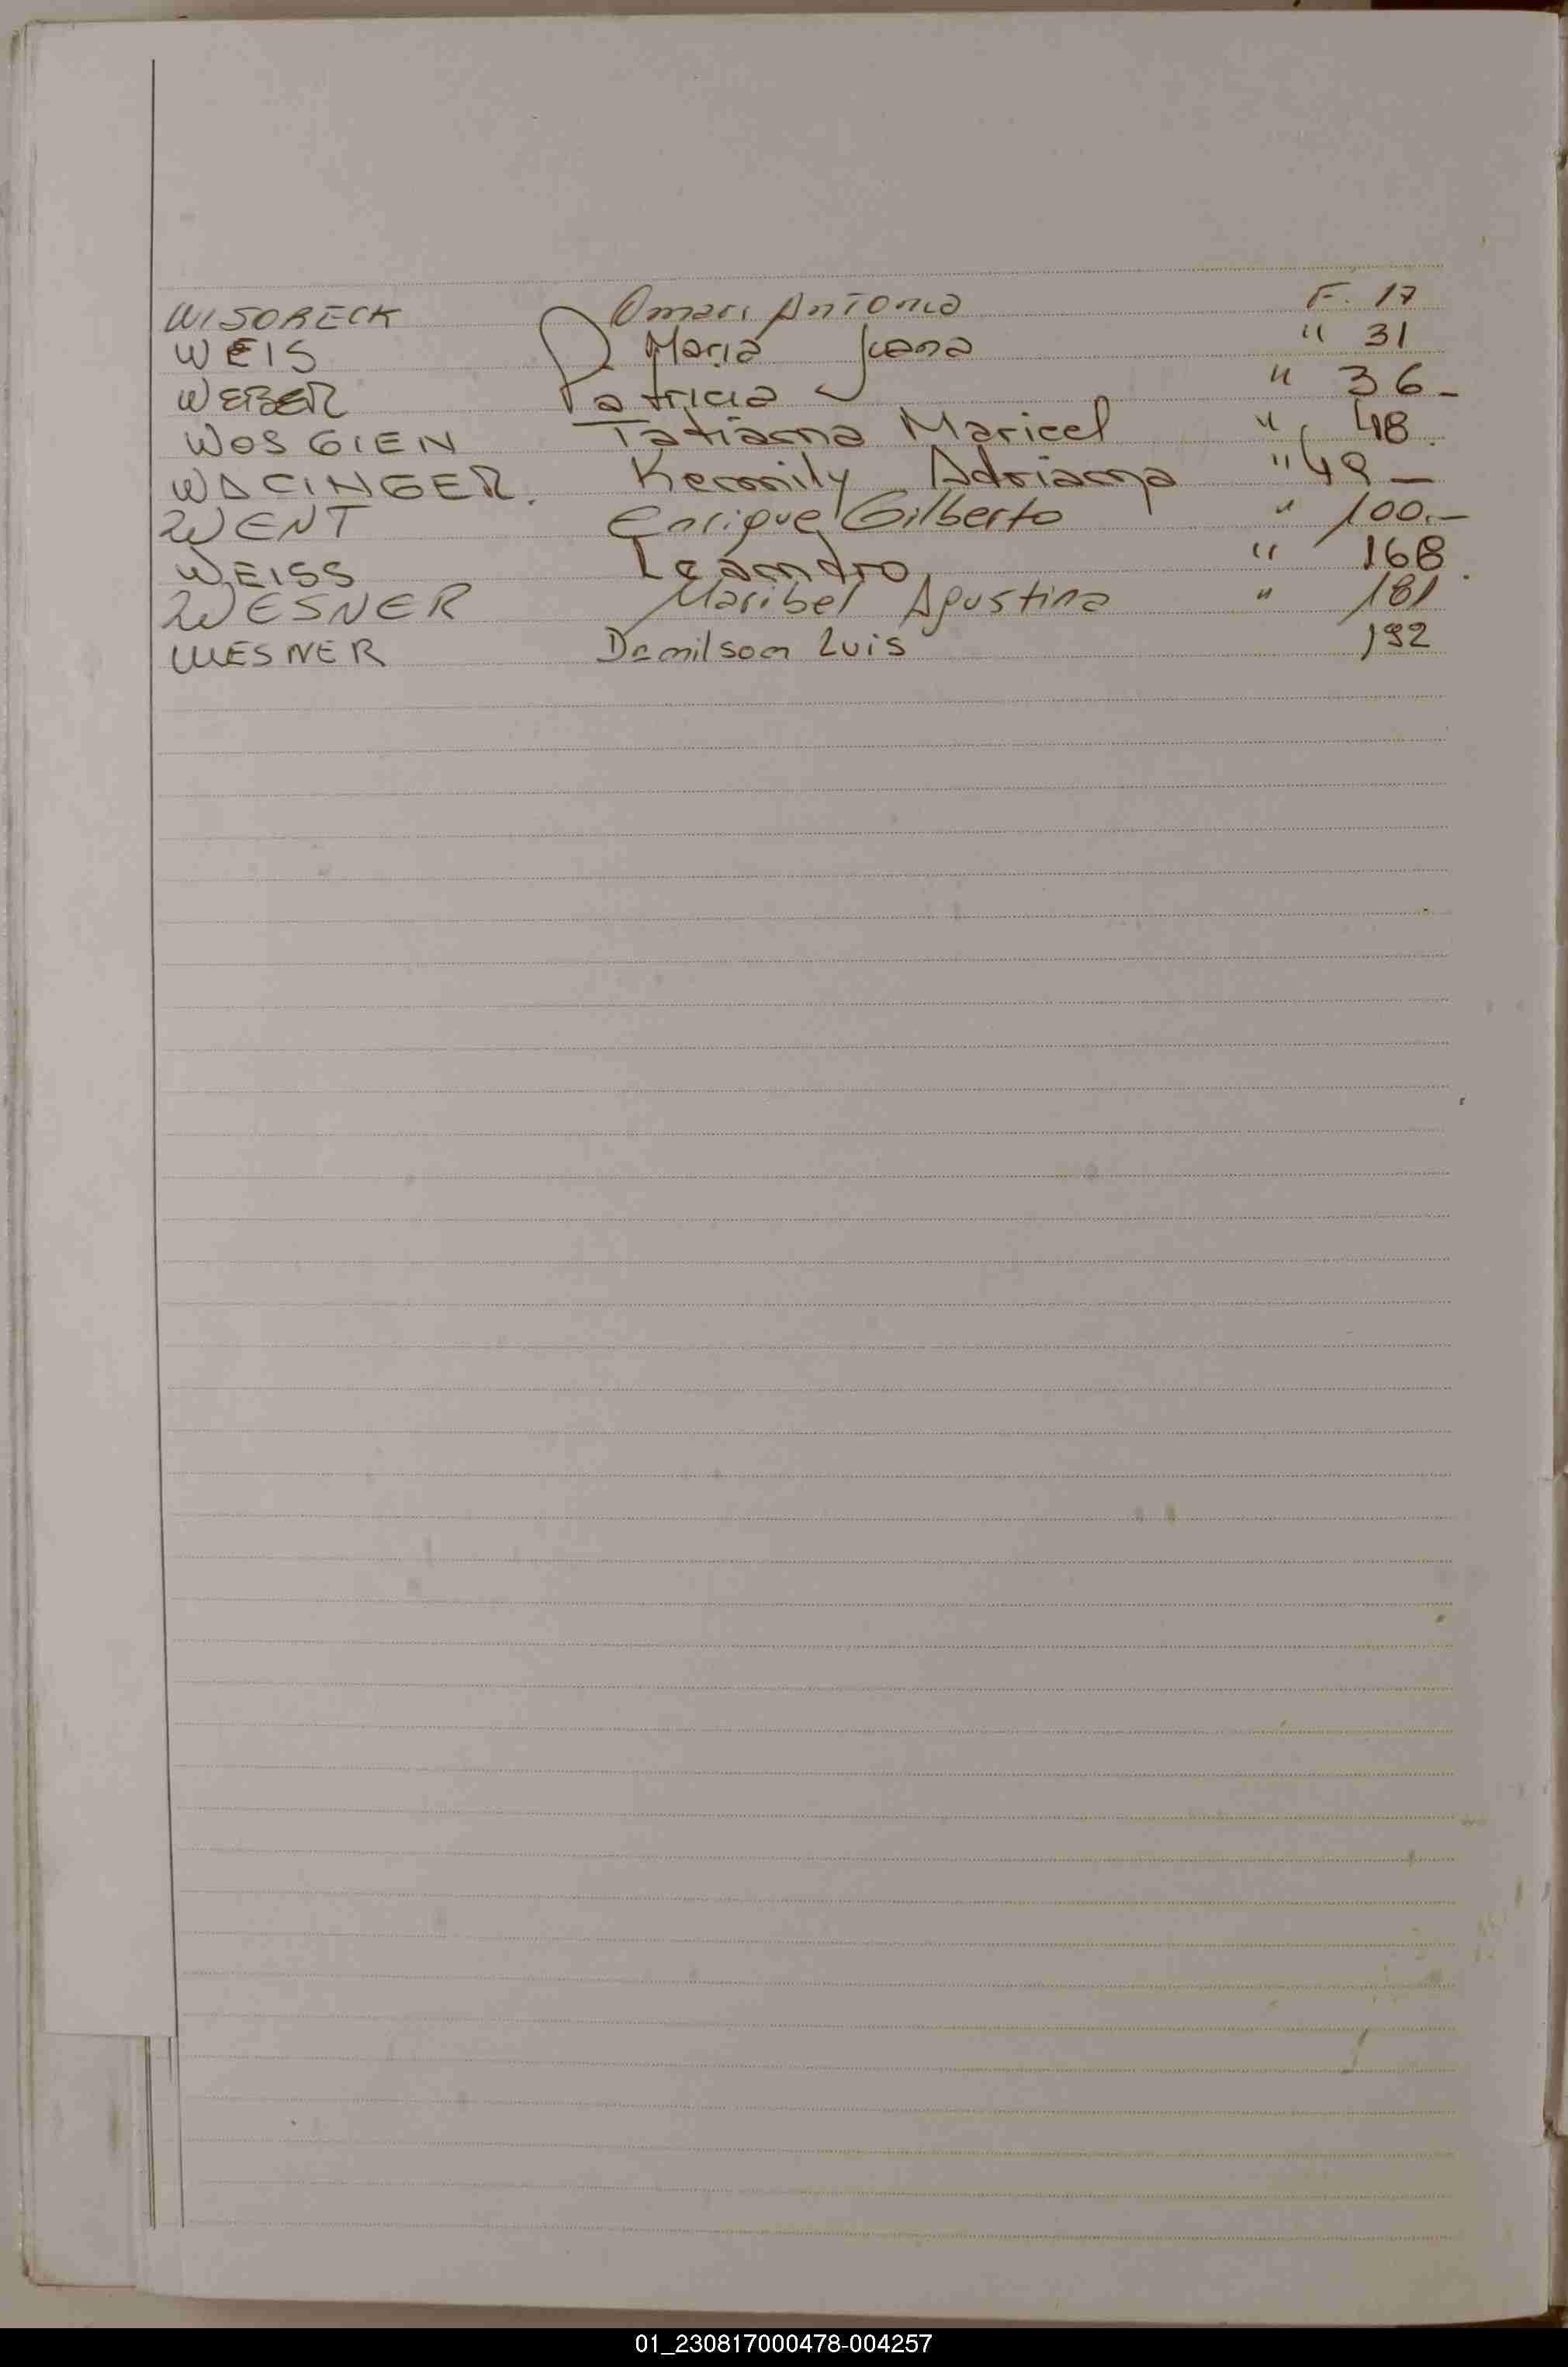 WISOBECK Omar Antonio F. 17
WEIS Maria Juana " 31
WEBER Patricia " 36-
WOSGIEN Tatiana Maricel " 48.
WACINGER. Kemily Adriana " 49-
WENT Enrique Gilberto " 100.-
WEISS Leandro " 168.
WESNER Maribel Agustina " 181
WESNER Damilson Luis 192
01_230817000478-004257